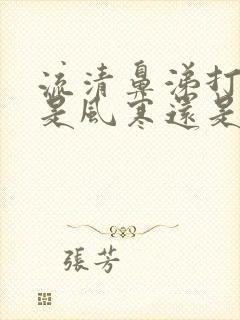 流清鼻涕打
是風寒還是
張芳